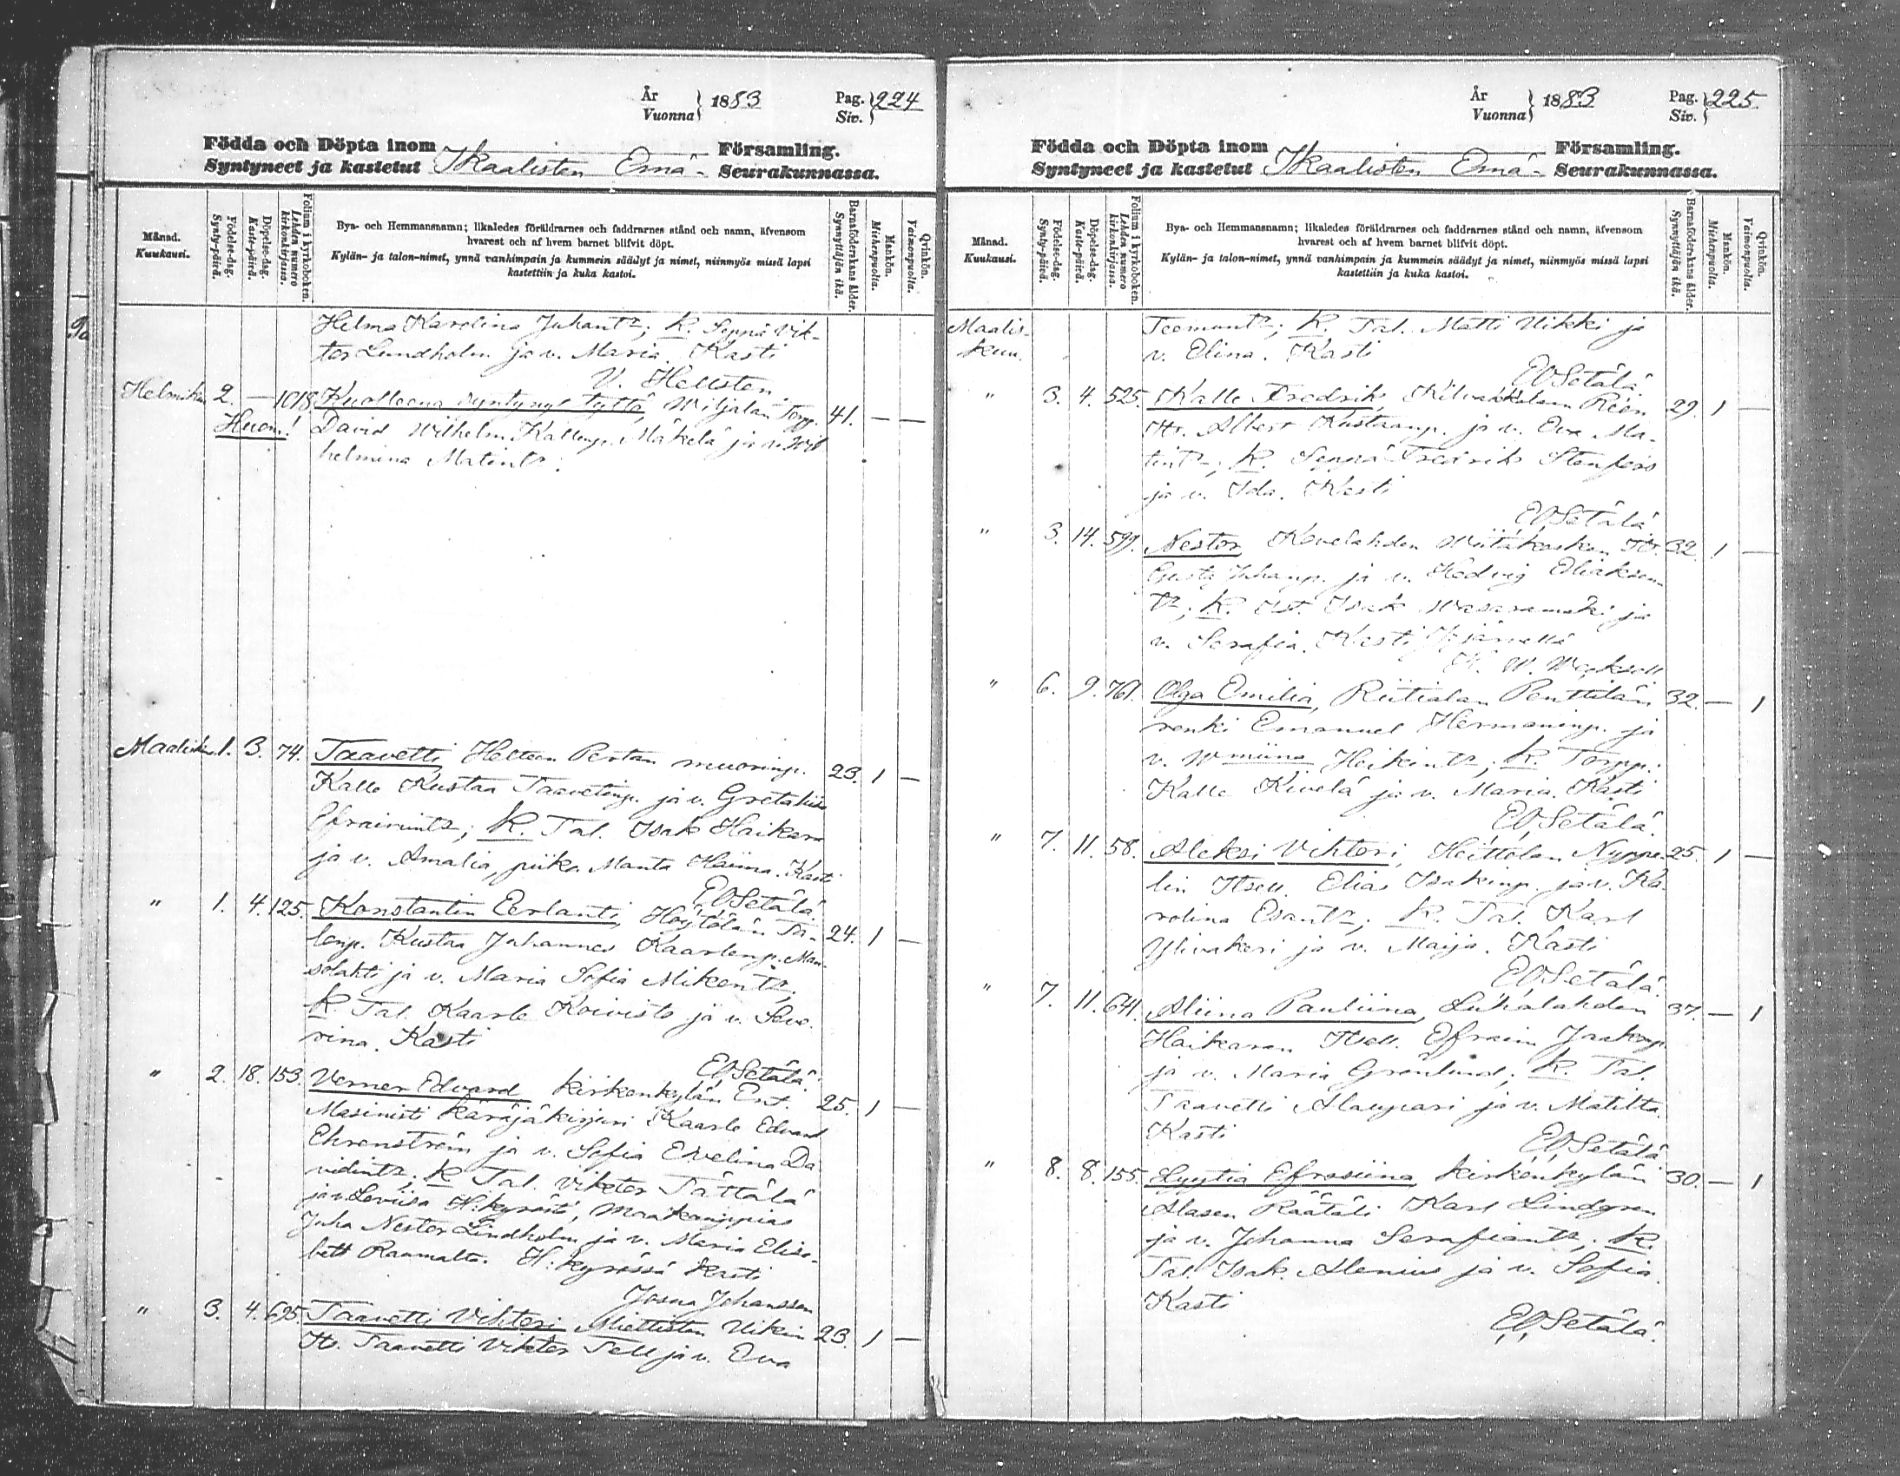 År
Vuonna } 1883 Pag.
Siv. } 224
Födda och Döpta inom
Syntyneet ja kastetut Ikaalisten Emä- Församling.
Seurakunnassa.
Månad.
Kuukausi.
Födelse-dag.
Synty-päivä.
Döpelse-dag.
Kaste-päivä.
Folium i kyrkoboken.
Lehden numero
kirkonkirjassa.
Bya- och Hemmansnamn; likaledes föräldrarnes och faddrarnes stånd och namn, äfvensom
hvarest och af hvem barnet blifvit döpt.
Kylän- ja talon-nimet, ynnä vanhimpain ja kummein säädyt ja nimet, niinmyös missä lapsi
kastettiin ja kuka kastoi.
Barnaföderskans ålder.
Synnyttäjän ikä.
Mankön.
Miehenpuolia.
Qvinkön.
Vaimonpuolia.
Helma Karolina Juhantr; K. Seppä Vik-
tor Lundholm ja v. Maria. Kasti
V. Hellsten.
Helmikuu 2. — 1018. Kuolleena syntynyt tyttö, Wiljalan Torpp. 41. — —
Huom! David Wilhelm Kallenp. Mäkelä ja v. Wil
helmina Matintr:
Maalisku 1. 3. 74. Taavetti Pertan muorinp. 23. 1 —
Kalle Kustaa Taavetinp. ja v. Greta
Efraimintr; K. Tal. Isak Haikara
ja v. Amalia, piika Manta Kasti
EO Setälä.
" 1. 4. 125. Konstantin Eerlanti, Höytölän Ta- 24. 1 —
lenp. Kustaa Juhannes Kaarlenp. Man-
solahti ja v. Maria Sofia Mikentr,
K. Tal. Kaarle Koivisto ja v. Seve-
rina. Kasti
EO Setälä.
" 2. 18. 153. Verner Edvard, Kirkonkylän Ent. 25. 1 —
Masinisti käräjäkirjuri Kaarle Edvard
Ehrenström ja v. Sofia Evelina Da
vidintr; K. Tal. Viktor Tättälä
ja v. Loviisa H:kyröstä, maakauppias
Juha Nestor Lindholm ja v. Maria Elisa-
bett Raumalta. H:kyrössä kasti
Josua Johansson
" 3. 4. 695. Taavetti Vihtori, Miettistan Uikin 23. 1 —
Itr. Taavetti Vihtor Tell ja v. Eva
År
Vuonna } 1883 Pag.
Siv. } 225.
Födda och Döpta inom
Syntyneet ja kastetut Ikaalisten Emä- Församling.
Seurakunnassa.
Månad.
Kuukausi.
Födelse-dag.
Synty-päivä.
Döpelse-dag.
Kaste-päivä.
Folium i kyrkoboken.
Lehden numero
kirkonkirjassa.
Bya- och Hemmansnamn; likaledes föräldrarnes och faddrarnes stånd och namn, äfvensom
hvarest och af hvem barnet blifvit döpt.
Kylän- ja talon-nimet, ynnä vanhimpain ja kummein säädyt ja nimet, niinmyös missä lapsi
kastettiin ja kuka kastoi.
Barnaföderskans ålder.
Synnyttäjän ikä.
Mankön.
Miehenpuolia.
Qvinkön.
Vaimonpuolia.
Maalis- Teemuntr; K. Tal. Matti Uikki ja
kuu. v. Elina. Kasti
EO Setälä
" 3. 4. 525. Kalle Fredrik, Kilvakkalan 29. 1 —
Itr. Albert Kustaanp. ja v. Eva Ma-
tintr; K. Seppä Fredrik Stenfors
ja v. Ida. Kasti
EO Setälä
" 3. 14. 599. Nestor Kovelahden Wiitakosken Itr. 32. 1 —
Gusta Juhanp. ja v. Hedvig Eliaksen
tr; K. Isak Wasaramäki ja
v. Serafia. Kasti
" 6. 9. 761. Olga Emilia, Riitialan Penttilän 32. — 1
renki Emanuel Hermaninp. ja
v. Wmiina Heikintr; K. Torpp.
Kalle Kivelä ja v. Maria. Kasti
EO Setälä.
" 7. 11. 58. Aleksi Vihtori, Heittolan Nyppe- 25. 1 —
lin Itsell. Elias Isakinp. ja v. Ka-
rolina Esantr; K. Tal. Karl
Ylivakeri ja v. Maija. Kasti
EO Setälä.
" 7. 11. 641. Aliina Pauliina, Luhalahden 37. — 1
Haikaran Itsell. Efraim Jaakonp.
ja v. Maria Grönlund; K. Tal.
Taavetti Alaypari ja v. Matilta.
Kasti
EO Setälä
" 8. 8. 155. Lyytia Efrosiina, kirkonkylän 30. — 1
Alasen Räätäli Karl Lindgren
ja v. Johanna Serafiantr; K.
Tal. Isak Alenius ja v. Sofia.
Kasti
EO Setälä.